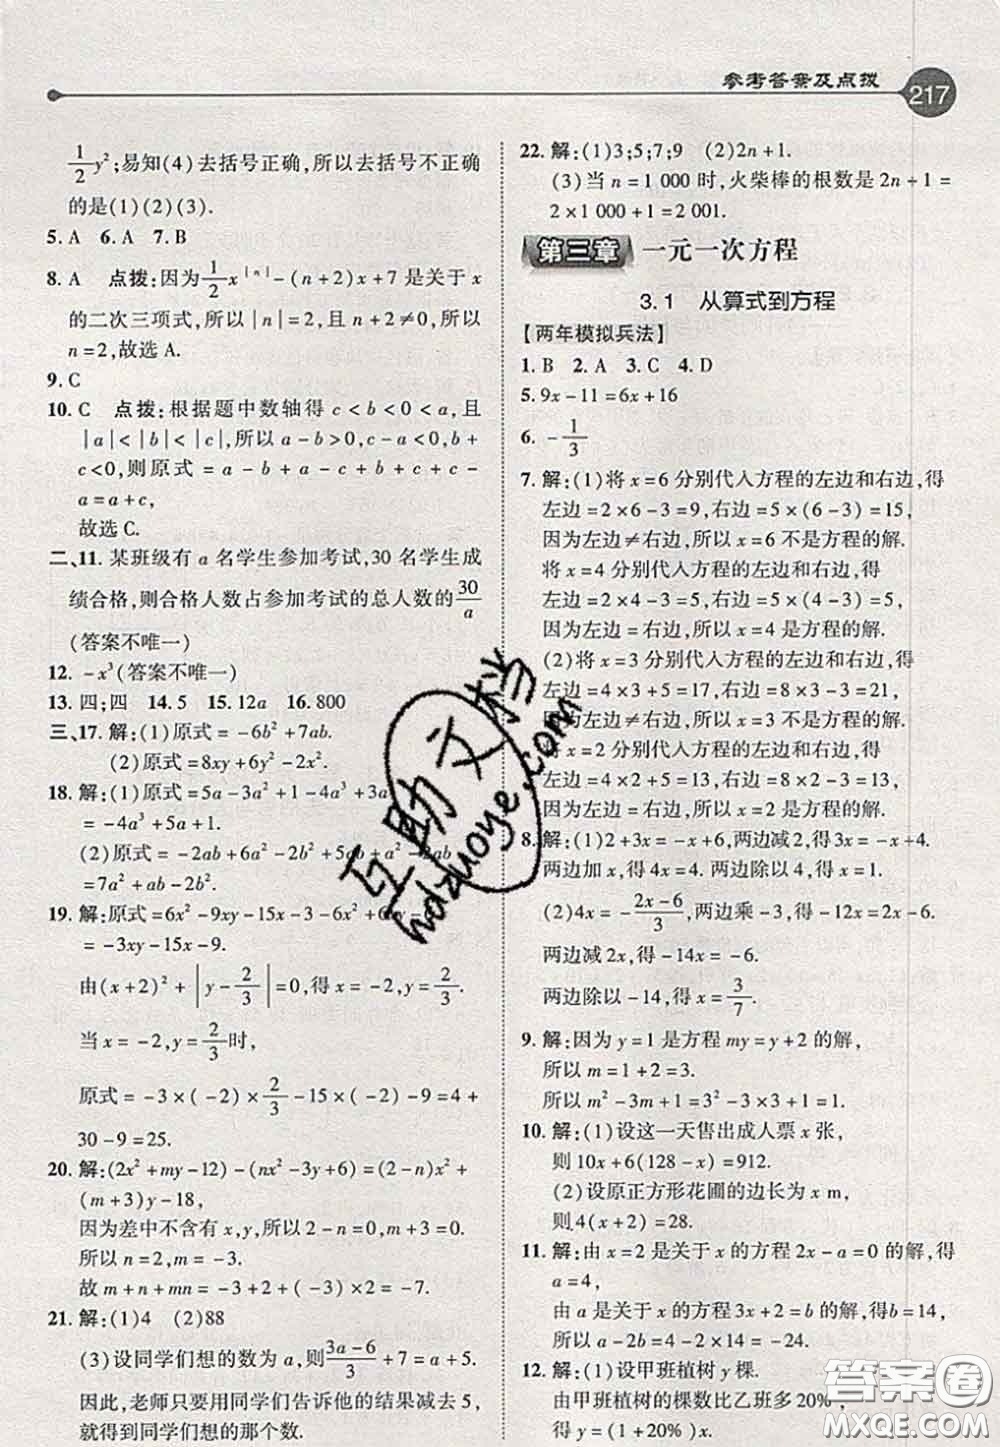 参考答案及点拨
217
1/2 y²;易知(4)去括号正确,所以去括号不正确
的是(1)(2)(3).
5. A 6. A 7. B
8. A 点拨:因为1/2 x^|n| -(n+2)x+7是关于x
的二次三项式,所以|n|=2,且n+2≠0,所以
n=2,故选A.
9. C
10. C 点拨:根据题中数轴得c<b<0<a,且
|a|<|b|<|c|,所以a-b>0,c-b<0,b+
c<0,则原式=a-b+a-c+b+c-b+c-
a=a+c,
故选C.
二、11. 某班级有a名学生参加考试,30名学生成
绩合格,则合格人数占参加考试的总人数的30/a
(答案不唯一)
12. -x³(答案不唯一)
13. 四;四 14. 5 15. 12a 16. 800
三、17. 解:(1)原式=-6b²+7ab.
(2)原式=8xy+6y²-2x².
18. 解:(1)原式=5a-3a²+1-4a³+3a
=-4a³+5a+1.
(2)原式=-2ab+6a²-2b²+5ab+a²-2ab
=7a²+ab-2b².
19. 解:原式=6x²-9xy-15x-3-6x²+6xy-6
=-3xy-15x-9.
由(x+2)²+|y-2/3|=0,得x=-2,y=2/3.
当x=-2,y=2/3时,
原式=-3×(-2)×2/3-15×(-2)-9=4+
30-9=25.
20. 解:(2x²+my-12)-(nx²-3y+6)=(2-n)x²+
(m+3)y-18,
因为差中不含有x,y,所以2-n=0,m+3=0.
所以n=2,m=-3.
故m+n+mn=-3+2+(-3)×2=-7.
21. 解:(1)4 (2)88
(3)设同学们想的数为a,则(3a-6)/3+7=a+5.
因此,老师只要用同学们告诉他的结果减去5,
就得到同学们想的那个数.
22. 解:(1)3;5;7;9 (2)2n+1.
(3)当n=1 000时,火柴棒的根数是2n+1=
2×1 000+1=2 001.
第三章 一元一次方程
3.1 从算式到方程
【两年模拟兵法】
1. B 2. A 3. C 4. D
5. 9x-11=6x+16
6. -1/3
7. 解:(1)将x=6分别代入方程的左边和右边,得
左边=2×6-3=9,右边=5×(6-3)=15,
因为左边≠右边,所以x=6不是方程的解.
将x=4分别代入方程的左边和右边,得
左边=2×4-3=5,右边=5×(4-3)=5,
因为左边=右边,所以x=4是方程的解.
(2)将x=3分别代入方程的左边和右边,得
左边=4×3+5=17,右边=8×3-3=21,
因为左边≠右边,所以x=3不是方程的解.
将x=2分别代入方程的左边和右边,得
左边=4×2+5=13,右边=8×2-3=13,
因为左边=右边,所以x=2是方程的解.
8. 解:(1)2+3x=-x+6,两边减2,得3x=-x+4.
两边加x,得4x=4.两边除以4,得x=1.
(2)4x=-(2x-6)/3,两边乘-3,得-12x=2x-6.
两边减2x,得-14x=-6.
两边除以-14,得x=3/7.
9. 解:因为y=1是方程my=y+2的解,
所以m=1+2=3.
所以m²-3m+1=3²-3×3+1=1.
10. 解:(1)设这一天售出成人票x张,
则10x+6(128-x)=912.
(2)设原正方形花圃的边长为x m,
则4(x+2)=28.
11. 解:由x=2是关于x的方程2x-a=0的解,得
a=4,
由a是关于x的方程3x+2=b的解,得b=14,
所以a-2b=4-2×14=-24.
12. 解:(1)设甲班植树y棵.
由甲班植树的棵数比乙班多20%,
得y=(1+20%)x.
互助文档
hdzuoye.com
答案圈
MXQE.COM